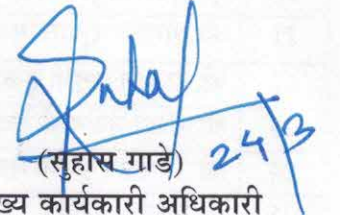 24/3
(सुहास गाडे)
ख्य कार्यकारी अधिकारी